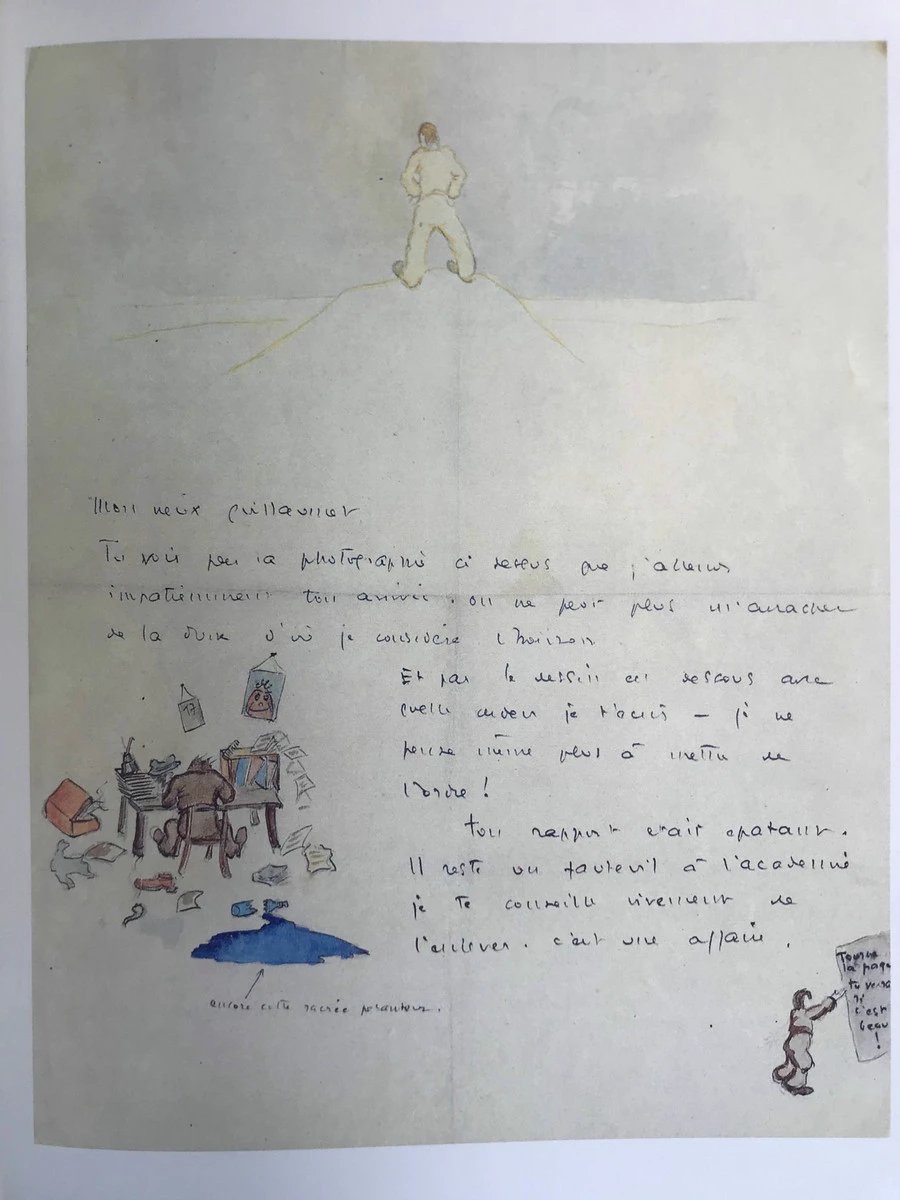 Mon vieux Guillaumet
Tu vois par la photographie ci dessus que j'attends
impatiemment ton arrivée. On ne peut plus m'arracher
de la dune d'où je considère l'horizon
Et par le dessin ci dessous avec
quelle ardeur je t'écris — je ne
pense même plus à mettre de
l'ordre !
Ton rapport était épatant.
Il reste un fauteuil à l'académie
je te conseille vivement de
l'enlever. C'est une affaire.
17
encore cette sacrée pesanteur.
Tourne
la page
tu verras
si
c'est
beau
!